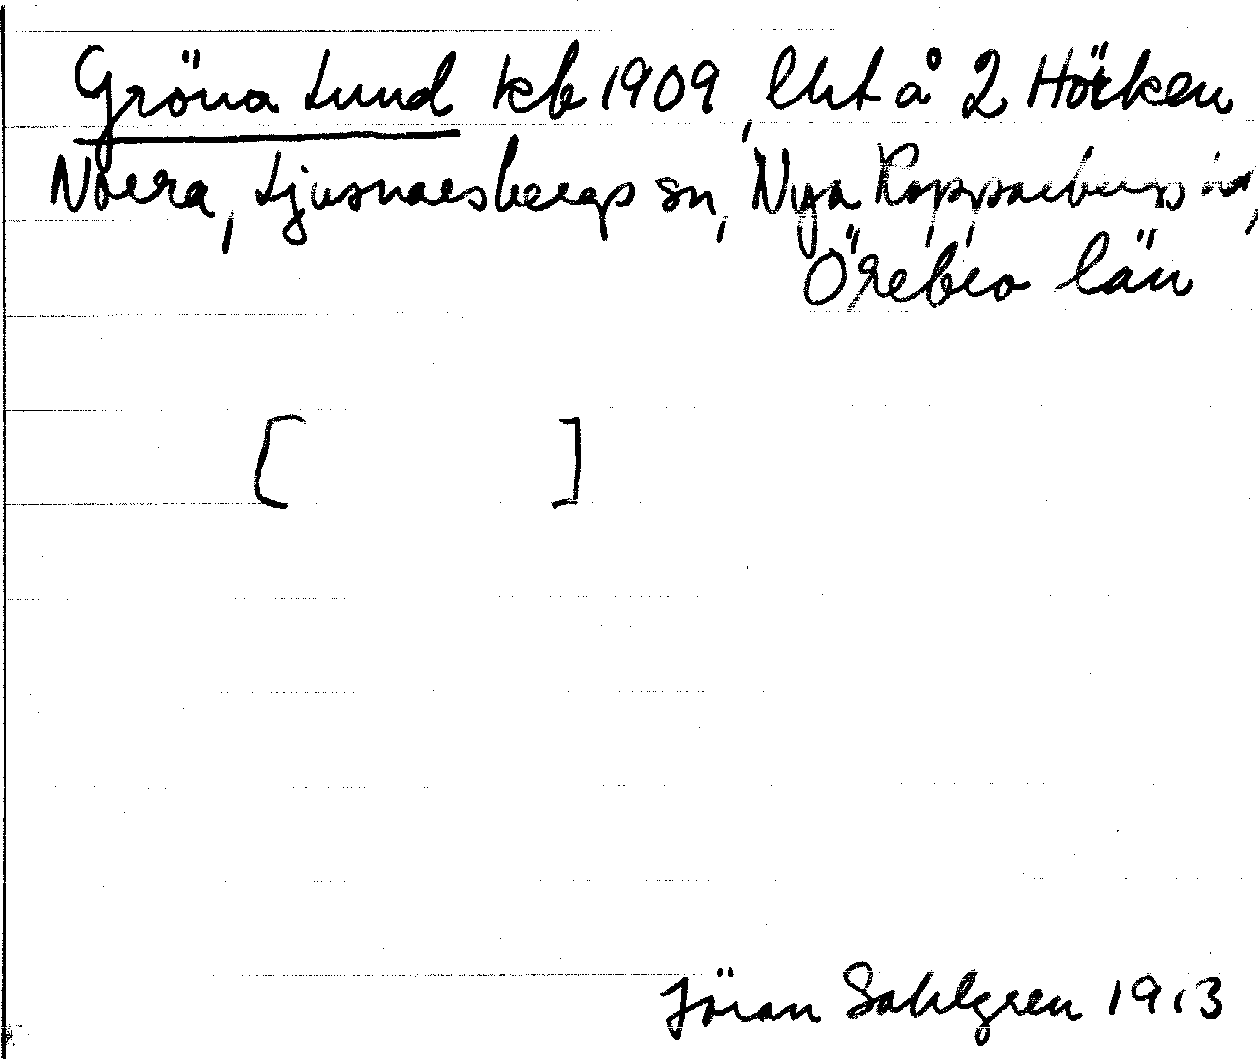 Gröna Lund kb 1909, lht å 2 Hörken
Norra, Ljusnarsbergs sn, Nya Kopparbergs
Örebro län
[ ]
Jöran Sahlgren 1913